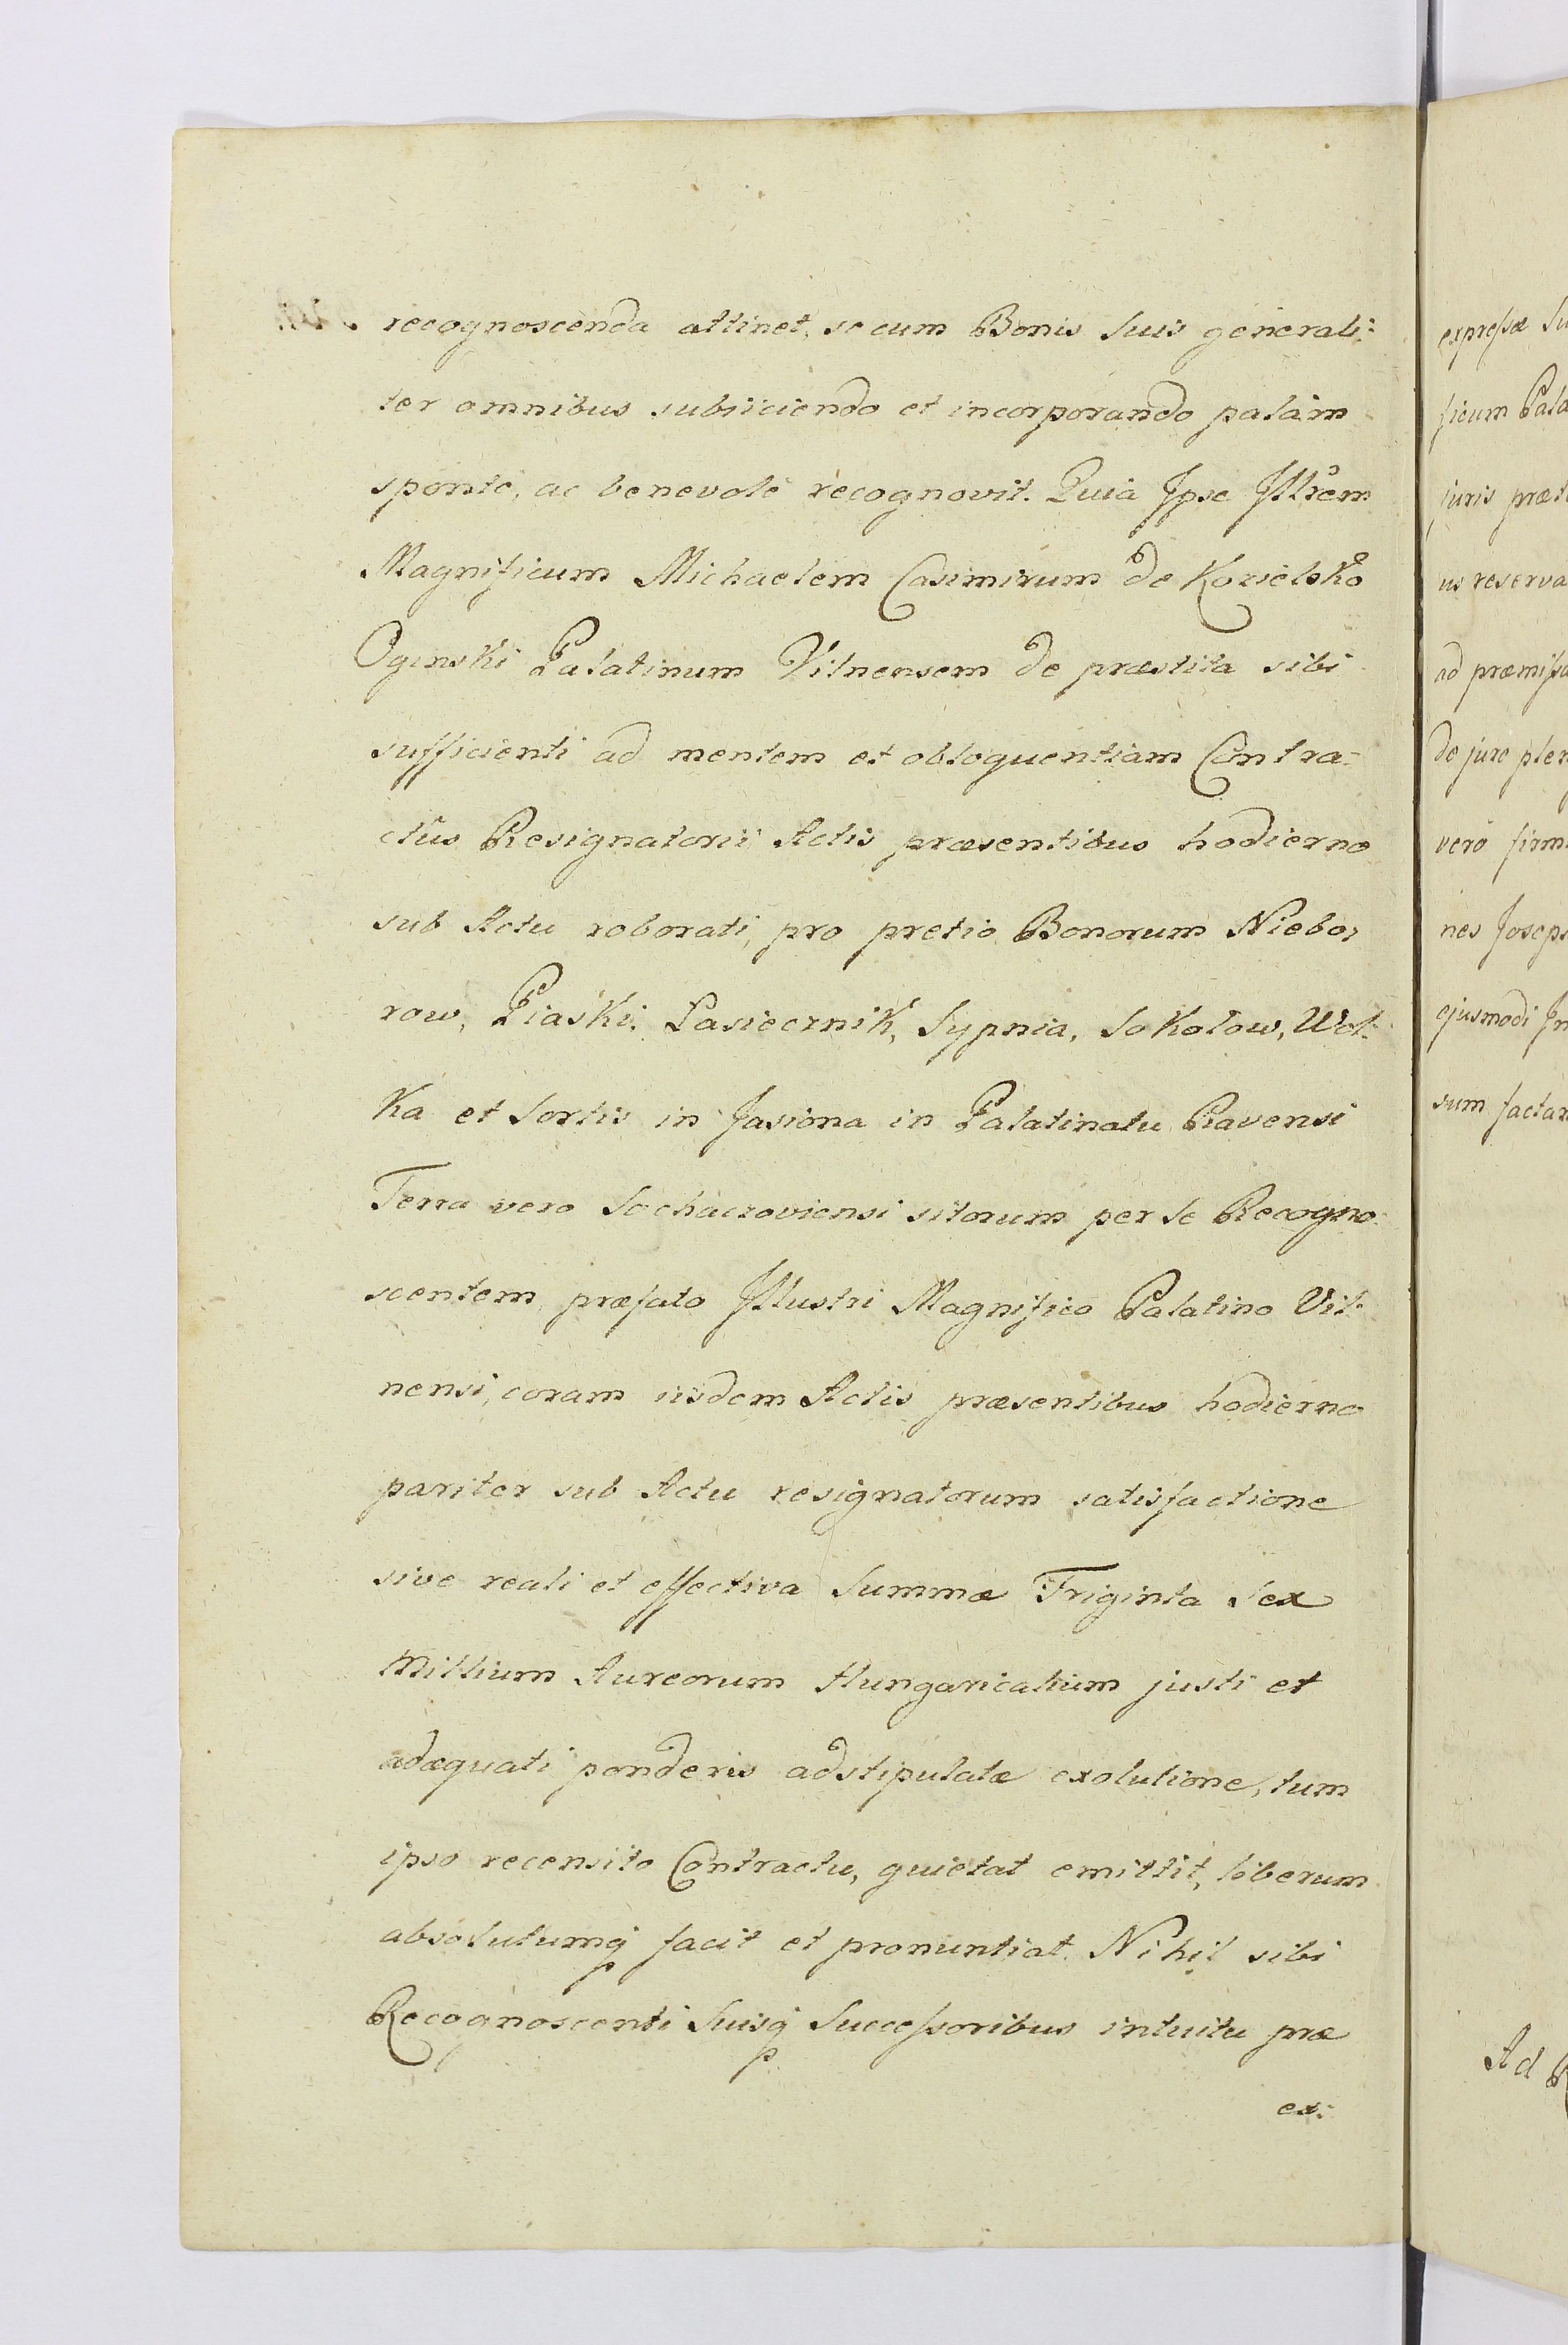 recognoscenda attinet, se cum Bonis suis generali:
ter omnibus subiiciendo et incorporando palàm
sponte, ac benevolè recognovit. Quia Ipse Illrem
Magnificum Michaelem Casimirum de Kozielsko
Oginski Palatinum Vilnensem de præstita sibi
sufficienti ad mentem et obloquentiam Contra-
ctûs Resignatorii Actis præsentibus hodierno
sub Actu roborati, pro pretio Bonorum Niebo,
row, Piaski, Pasiecznik, Sypnia, Sokolow, Wol:
ka et Sortis in Jasiona in Palatinatu Ravensi
Terra vero Sochaczoviensi sitorum per se Recogno:
scentem, præfato Illustri Magnifico Palatino Vil:
nensi, coram iisdem Actis præsentibus hodierno
pariter sub Actu resignatorum satisfactione
sive reali et effectiva Summæ Triginta Sex
Millium Aureorum Hungaricalium justi et
adæquati ponderis adstipulatæ exolutione, tum
ipso recensito Contractu, quietat emittit, liberum
absolutumq facit et pronuntiat. Nihil sibi
Recognoscenti Suisq Successoribus intuitu præ
ex:
expressæ Su
ficum Pala
juris præt
us reserva
ad præmissa
de jure plen
verò firm
nes Joseph
ejusmodi In
sum factam
Ad R